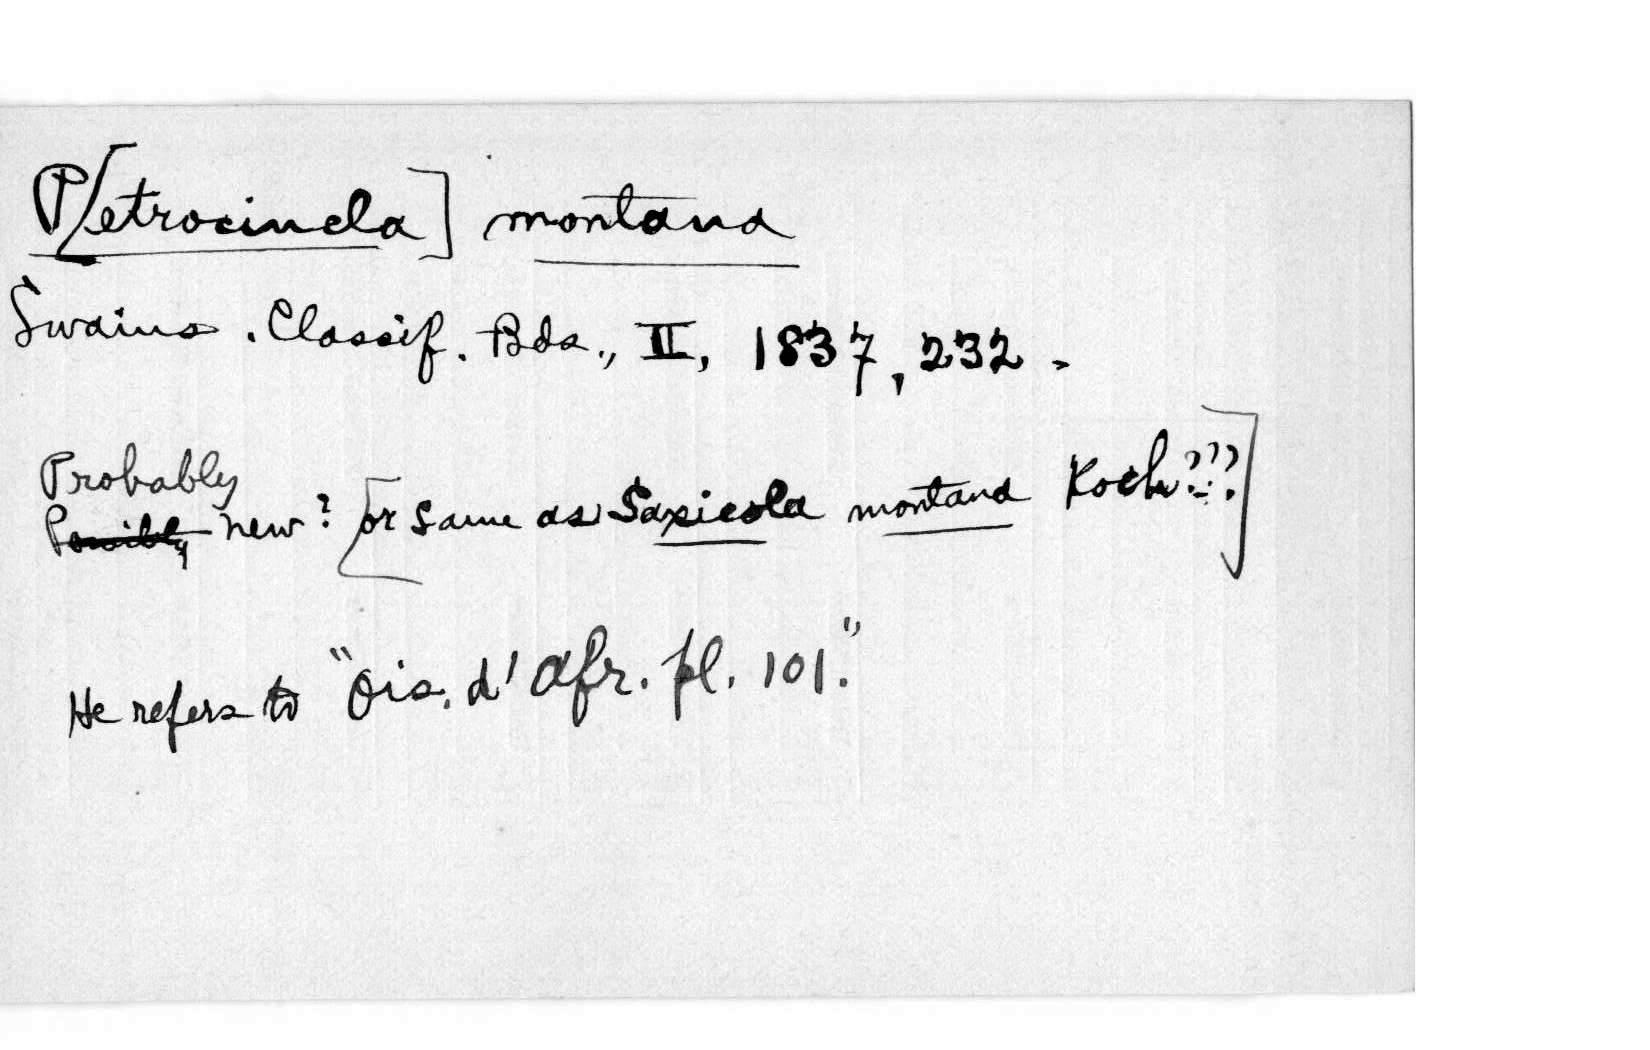 P[etrocincla] montana
Swains. Classif. Bds., II, 1837, 232.
Probably
Possibly new? [or same as Saxicola montana Koch???]
He refers to "Ois. d'Afr. pl. 101."